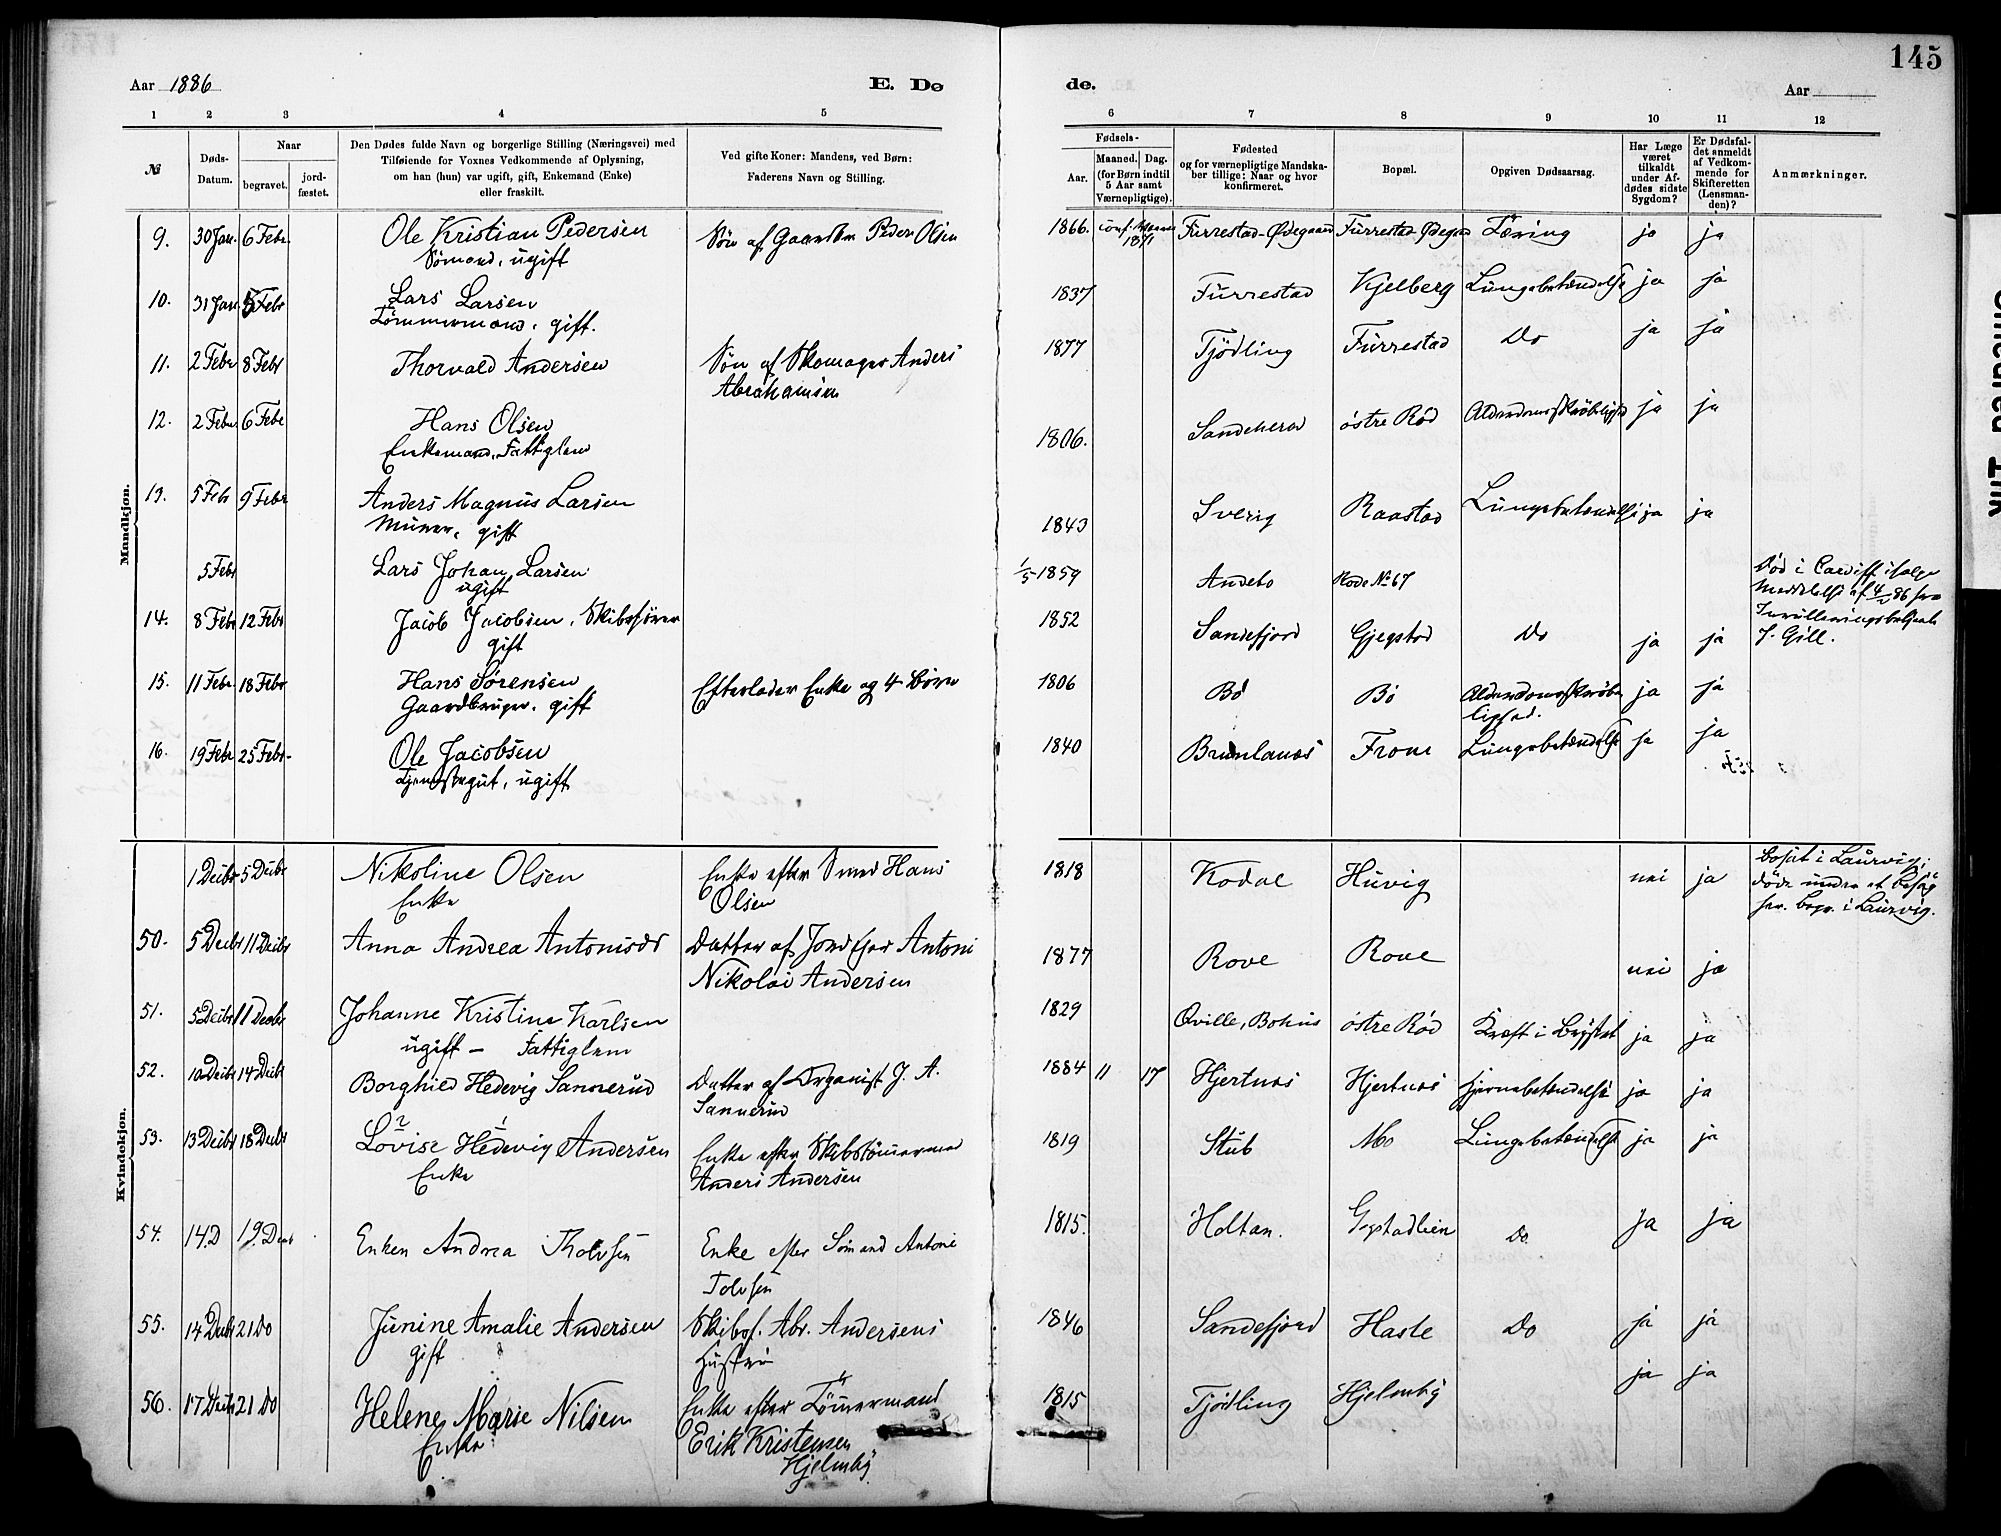 145
Aar 1886
E. Dø
de.
Aar
1 2 3 4 5 6 7 8 9 10 11 12
№
Døds-
Datum.
Naar
begravet.
jord-
fæstet.
Den Dødes fulde Navn og borgerlige Stilling (Næringsvei) med
Tilføiende for Voxnes Vedkommende af Oplysning,
om han (hun) var ugift, gift, Enkemand (Enke)
eller fraskilt.
Ved gifte Koner: Mandens, ved Børn:
Faderens Navn og Stilling.
Fødsels-
Aar.
Maaned. Dag.
(for Børn indtil
5 Aar samt
Værnepligtige).
Fødested
og for værnepligtige Mandska-
ber tillige: Naar og hvor
konfirmeret.
Bopæl.
Opgiven Dødsaarsag.
Har Læge
været
tilkaldt
under Af-
dødes sidste
Sygdom?
Er Dødsfal-
det anmeldt
af Vedkom-
mende for
Skifteretten
(Lensman-
den)?
Anmærkninger.
Mandkjøn.
9. 30 Jan. 6 Febr. Ole Kristian Pedersen Søn af Gaardbr. Peder Olsen 1866. Furrestad-Ødegaard Furrestad Ødegrd Tæring ja ja
Sømand, ugift
10. 31 Jan 5 Febr Lars Larsen 1837 Furrestad Kjelberg Lungebetændelse ja ja
Tømmermand, gift.
11. 2 Febr 8 Febr Thorvald Andersen Søn af Skomager Anders 1877 Tjødling Furrestad Do ja ja
Abrahamsen
12. 2 Febr 6 Febr Hans Olsen 1806. Sandeherred østre Rød Alderdomsskrøbelighed ja ja
Enkemand, Fattiglem
13. 5 Febr 9 Febr Anders Magnus Larsen 1843 Sverig Raastad Lungebetændelse ja ja
Murer, gift
5 Febr Lars Johan Larsen 1/5 1859 Andebo Rode No 67 Død i Cardiff ifølge
ugift Meddelelse af 4/ 86 fra
14. 8 Febr 12 Febr Jacob Jacobsen, Skibsfører 1852 Sandefjord Gjegstad Do ja ja
gift
Inrulleringsbetjent
J. Gill.
15. 11 Febr 18 Febr Hans Sørensen Efterlader Enke og 4 Børn 1806 Bø Bø Alderdomsskrøbe ja ja
Gaardbruger, gift lighed.
16. 19 Febr 25 Febr. Ole Jacobsen 1840 Brunlanæs From Lungebetændelse ja ja
Tjenestegut, ugift
Kvindekjøn.
1 Decbr 5 Decbr Nikoline Olsen Enke efter Smed Hans 1818 Kodal Huvig nei ja bosat i Laurvig;
Enke Olsen døde under et besøg
her. begr. i Laurvig.
50. 5 Decbr 11 Decbr Anna Andrea Antonisdr Datter af Jordejer Antoni 1877 Rove Rove nei ja
Nikolai Andersen
51. 5 Decbr 11 Decbr Johanne Kristine Karlsen 1829 Qville, Bohus østre Rød Kræft i Brystet ja ja
ugift – Fattiglem
52. 10 Decbr 14 Decbr Borghild Hedevig Sannerud Datter af Organist J. A. 1884 11 17 Hjertnæs Hjertnæs Hjernebetændelse ja ja
Sannerud
53. 13 Decbr 18 Decbr 2 1
Lovise Hedevig Andersen Enke efter Skibstømmermand 1819 Stub Mo Lungebetændelse ja ja
Enke Anders Andersen
54. 14.D 19. Decbr Enken Andrea Tholvsen Enke efter Sømand Antoni 1815. Holtan. Gogstadleien Do ja ja
Tolvsen
55. 14 Decbr 21 Do Junine Amalie Andersen Skibsf. Abr. Andersens 1846 Sandefjord Hasle Do ja ja
gift Hustru
56. 17 Decbr 21 Do Helene Marie Nilsen Enke efter Tømmermand 1815 Tjødling Hjelmby ja ja
Enke Erik Kristensen
Hjelmby